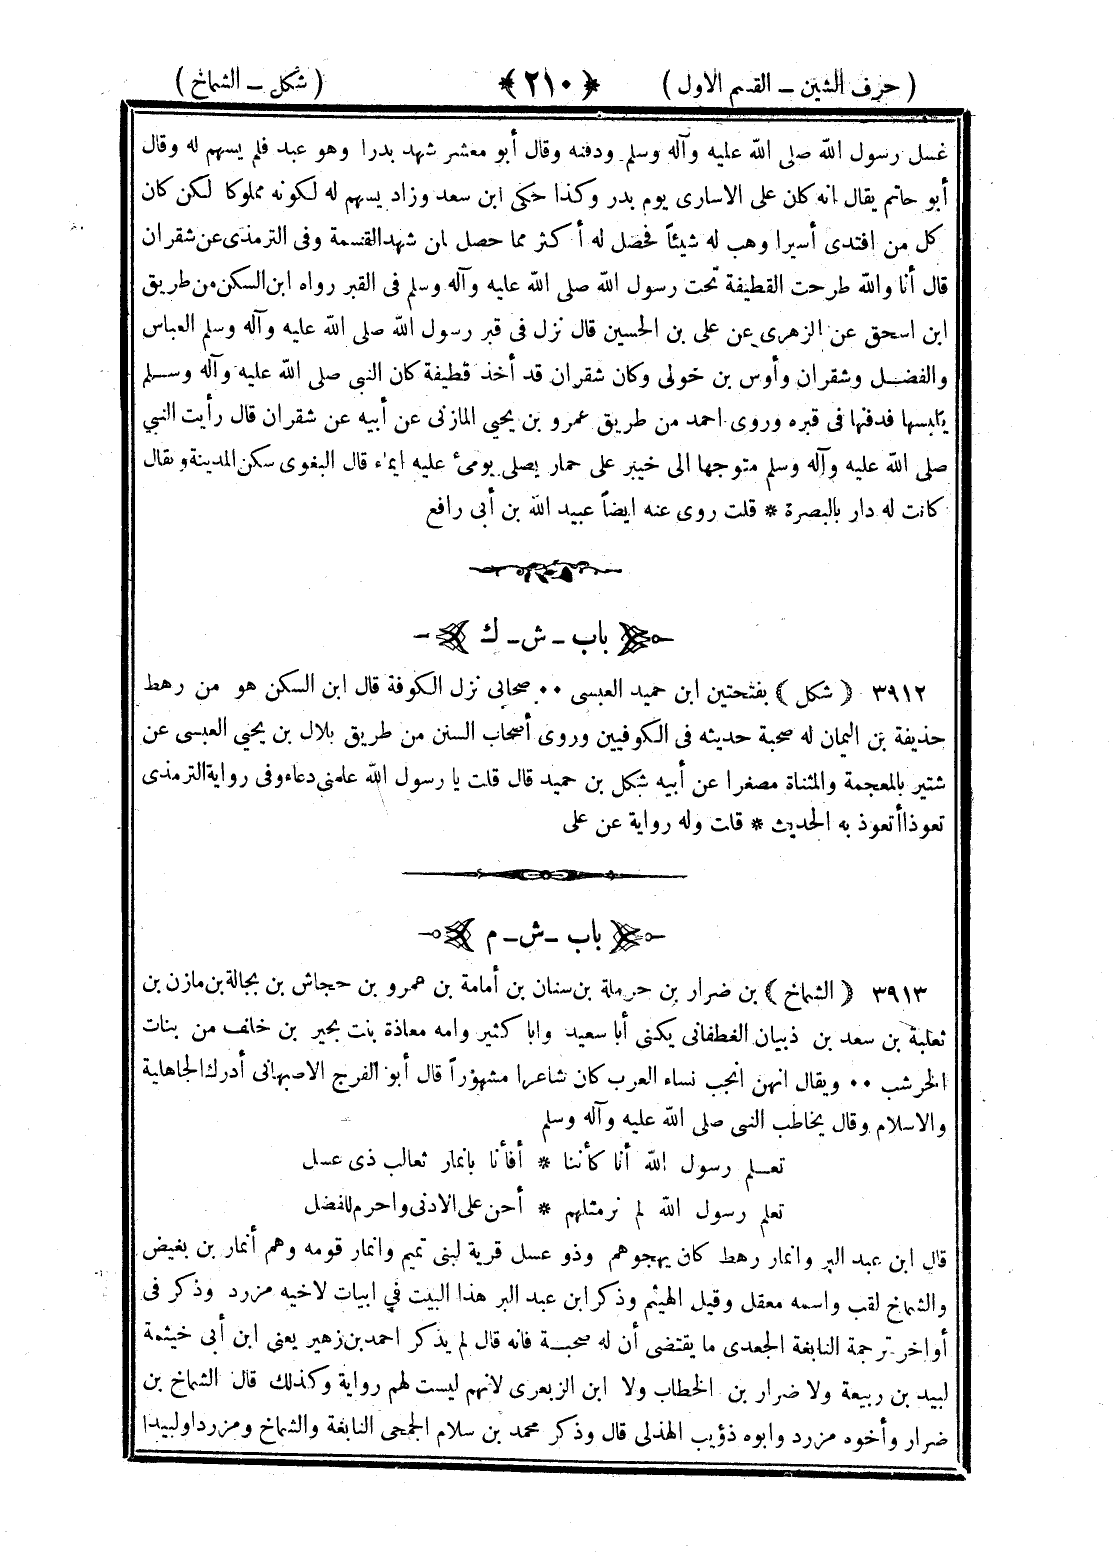 ( حرف الشين – القسم الاول ) ﴿ ٢١٠ ﴾ ( شكل – الشماخ )
غسل رسول الله صلى الله عليه وآله وسلم ودفنه وقال أبو معشر شهد بدرا وهو عبد فلم يسهم له وقال
أبو حاتم يقال انه كان على الاسارى يوم بدر وكذا حكى ابن سعد وزاد يسهم له لكونه مملوكا لكن كان
كل من افتدى أسيرا وهب له شيئاً فحصل له أكثر مما حصل لمن شهد القسمة وفى الترمذى عن شقران
قال أنا والله طرحت القطيفة تحت رسول الله صلى الله عليه وآله وسلم فى القبر رواه ابن السكن من طريق
ابن اسحق عن الزهرى عن على بن الحسين قال نزل فى قبر رسول الله صلى الله عليه وآله وسلم العباس
والفضل وشقران وأوس بن خولى وكان شقران قد أخذ قطيفة كان النبي صلى الله عليه وآله وسلم
يلبسها فدفنها فى قبره وروى احمد من طريق عمرو بن يحيي المازنى عن أبيه عن شقران قال رأيت النبي
صلى الله عليه وآله وسلم متوجها الى خيبر على حمار يصلى يومئ عليه ايماء قال البغوى سكن المدينة ويقال
كانت له دار بالبصرة * قلت روى عنه ايضاً عبيد الله بن أبى رافع
باب – ش – ك
٣٩١٢ ﴿ شكل ﴾ بفتحتين ابن حميد العبسى ٠٠ صحابى نزل الكوفة قال ابن السكن هو من رهط
حذيفة بن اليمان له صحبة حديثه فى الكوفيين وروى أصحاب السنن من طريق بلال بن يحيي العبسى عن
شتير بالمعجمة والمثناة مصغرا عن أبيه شكل بن حميد قال قلت يا رسول الله علمنى دعاء وفى رواية الترمذى
تعوذا أتعوذ به الحديث * قلت وله رواية عن على
باب – ش – م
٣٩١٣ ﴿ الشماخ ﴾ بن ضرار بن حرملة بن سنان بن أمامة بن عمرو بن حجاش بن بجالة بن مازن بن
ثعلبة بن سعد بن ذبيان الغطفانى يكنى أبا سعيد وابا كثير وامه معاذة بنت بجير بن خالف من بنات
الخرشب ٠٠ ويقال انهن انجب نساء العرب كان شاعرا مشهوراً قال أبو الفرج الاصبهانى أدرك الجاهلية
والاسلام وقال يخاطب النبى صلى الله عليه وآله وسلم
تعلم رسول الله أنا كأننا * أفأنا بانمار ثعالب ذى عسل
تعلم رسول الله لم نر مثلهم * أحن على الادنى واحرم للفضل
قال ابن عبد البر وانمار رهط كان يهجوهم وذو عسل قرية لبنى تميم وانمار قومه وهم أنمار بن بغيض
والشماخ لقب واسمه معقل وقيل الهيثم وذكر ابن عبد البر هذا البيت في ابيات لاخيه مزرد وذكر فى
أواخر ترجمة النابغة الجعدى ما يقتضى أن له صحبة فانه قال لم يذكر احمد بن زهير يعنى ابن أبى خيثمة
لبيد بن ربيعة ولا ضرار بن الخطاب ولا ابن الزبعرى لانهم ليست لهم رواية وكذلك قال الشماخ بن
ضرار وأخوه مزرد وابوه ذؤيب الهذلى قال وذكر محمد بن سلام الجمحى النابغة والشماخ ومزردا ولبيدا